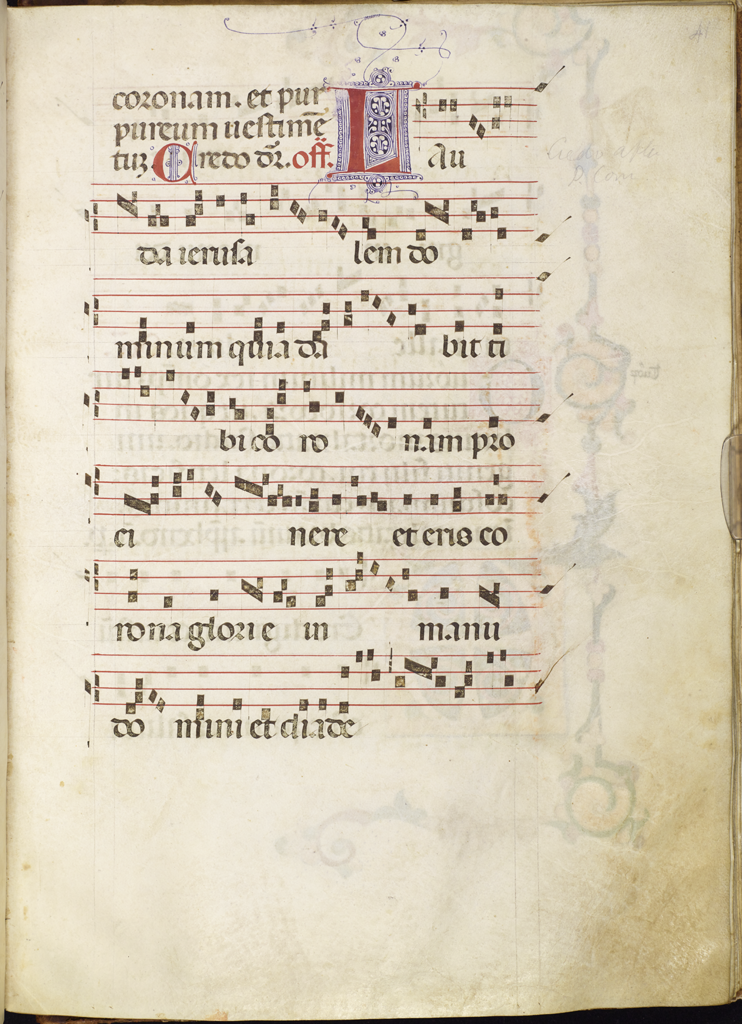 coronam. et pur
pureum uestimē
tuȝ Credo dr̄. off.
Lau
da ierusa lem do
minum quia da bit ti
bi co ro nam pro
ci nere et eris co
ro na glori e in manu
do mini et diade